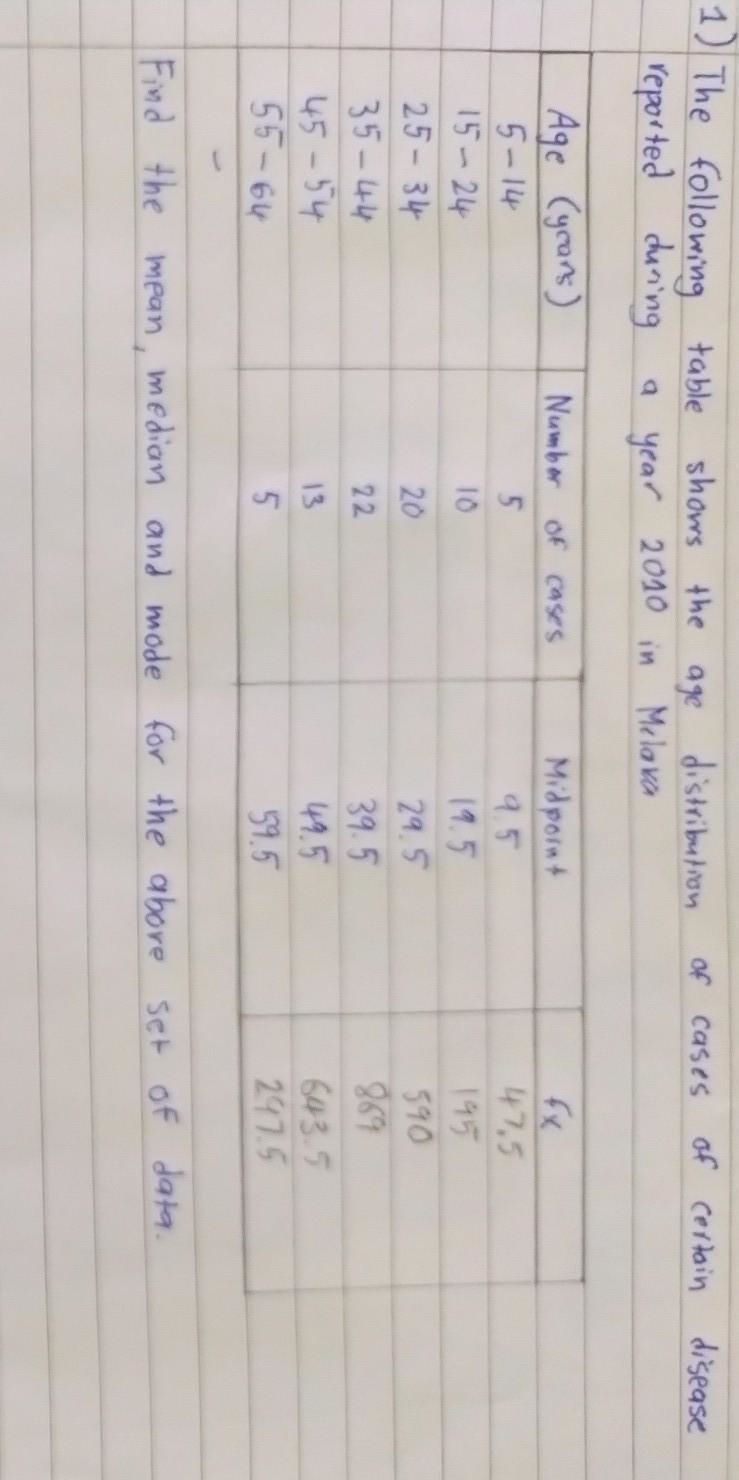 1) The following table shows the age distribution of cases of certain disease
reported during a year 2010 in Melaka
Age (years) Number of cases Midpoint fx
5-14 5 9.5 47.5
15-24 10 19.5 195
25-34 20 29.5 590
35-44 22 39.5 869
45-54 13 49.5 643.5
55-64 5 59.5 297.5
Find the mean, median and mode for the above set of data.